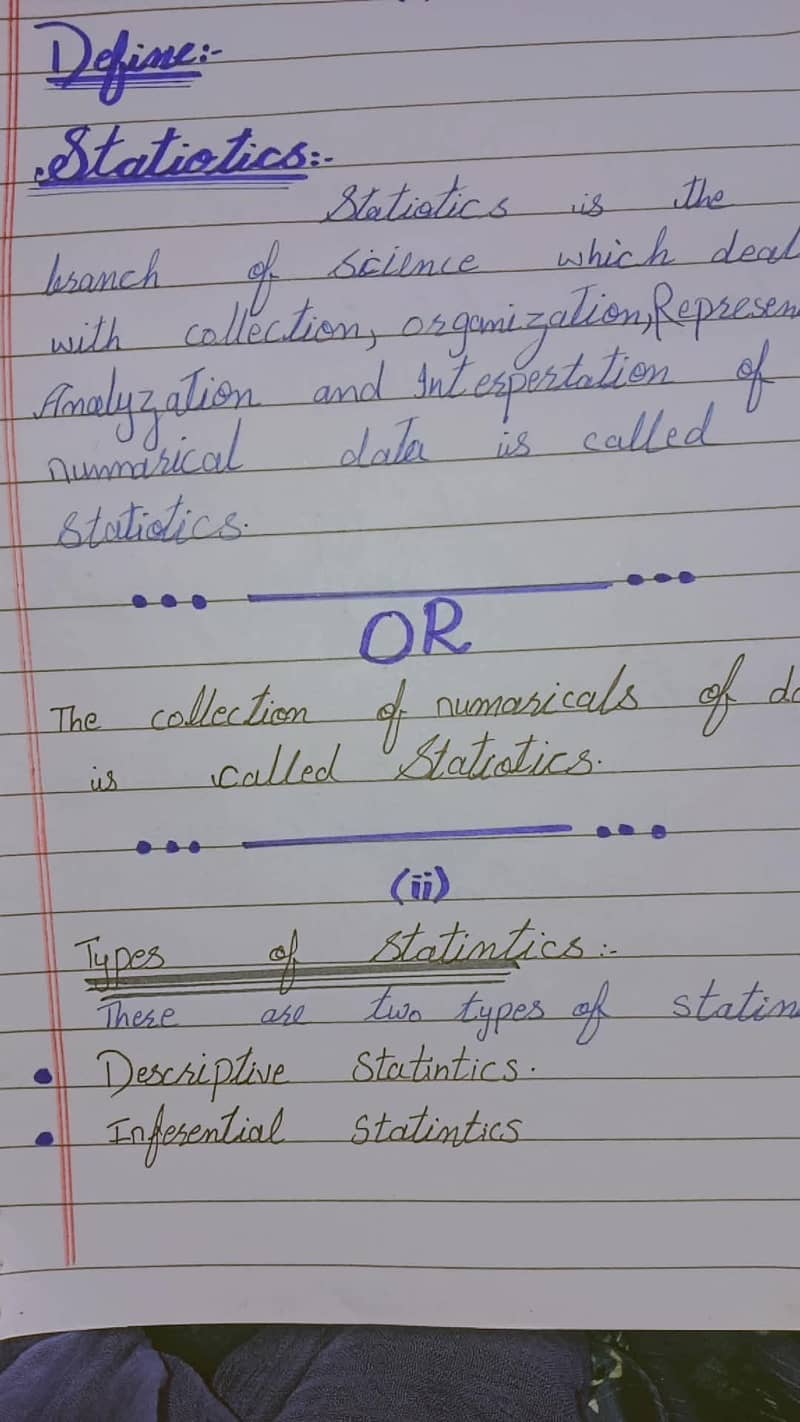 Define:-
Statiotics:-
Statiotics is the
branch of science which deal
with collection, organization, Represen
Analyzation and Interpertation of
nummarical data is called
Statiotics.
OR
The collection of numaricals of da
is called Statiotics.
(ii)
Types of Statintics:-
These are two types of statin
• Descriptive Statintics.
• Inferential Statintics